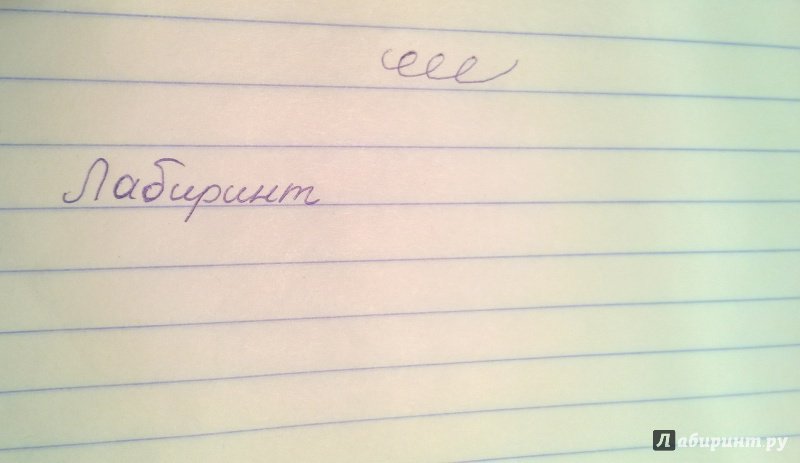 Лабиринт
Лабиринт.ру